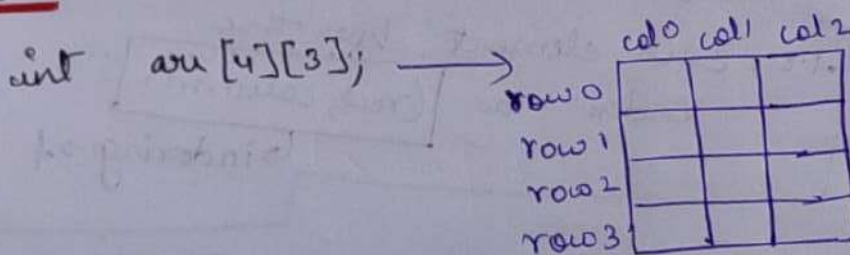 int arr [4][3]; → col0 col1 col2
row 0
row 1
row 2
row 3